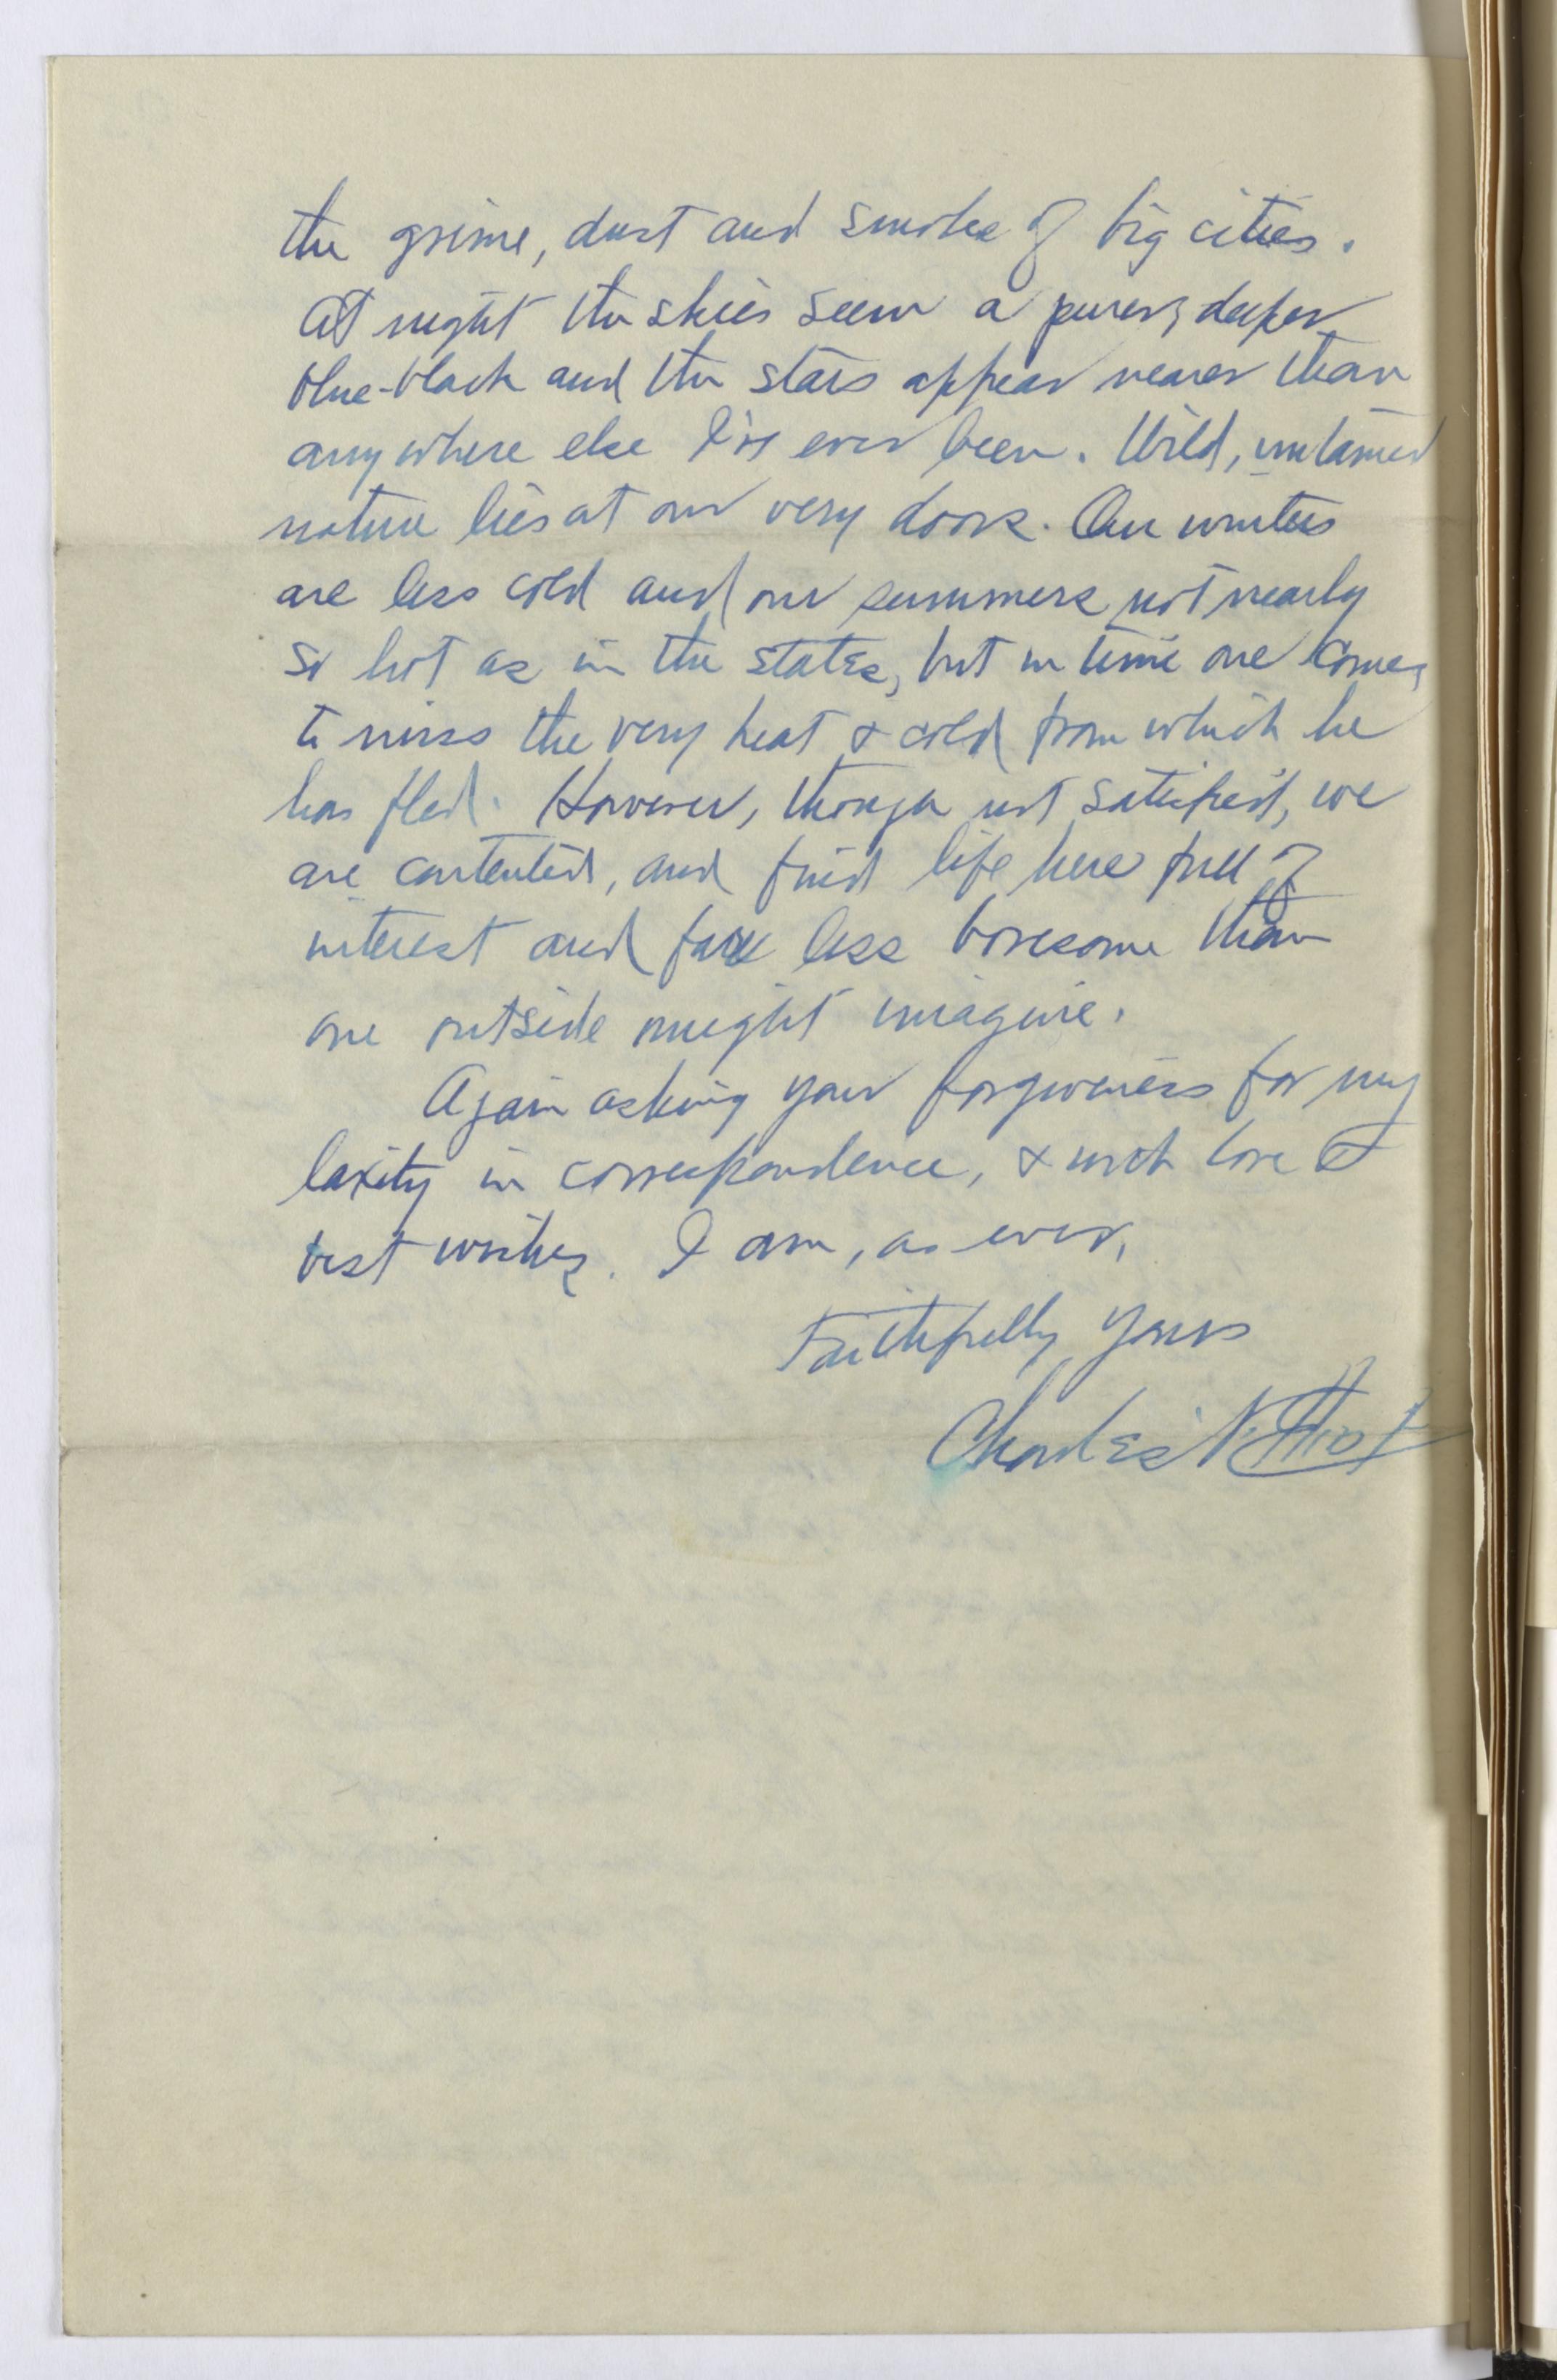 the grime, dust and smoke of big cities.
At night the skies seem a purer, deeper
blue-black and the stars appear nearer than
anywhere else I've ever been. Wild, untamed
nature lies at our very doors. Our winters
are less cold and our summers not nearly
so hot as in the states, but in time one comes
to miss the very heat & cold from which he
has fled. However, though not satisfied, we
are contented, and find life here full of
interest and far less boresome than
one outside might imagine.
Again asking your forgiveness for my
laxity in correspondence, & with love &
best wishes. I am, as ever,
Faithfully yours
Charles